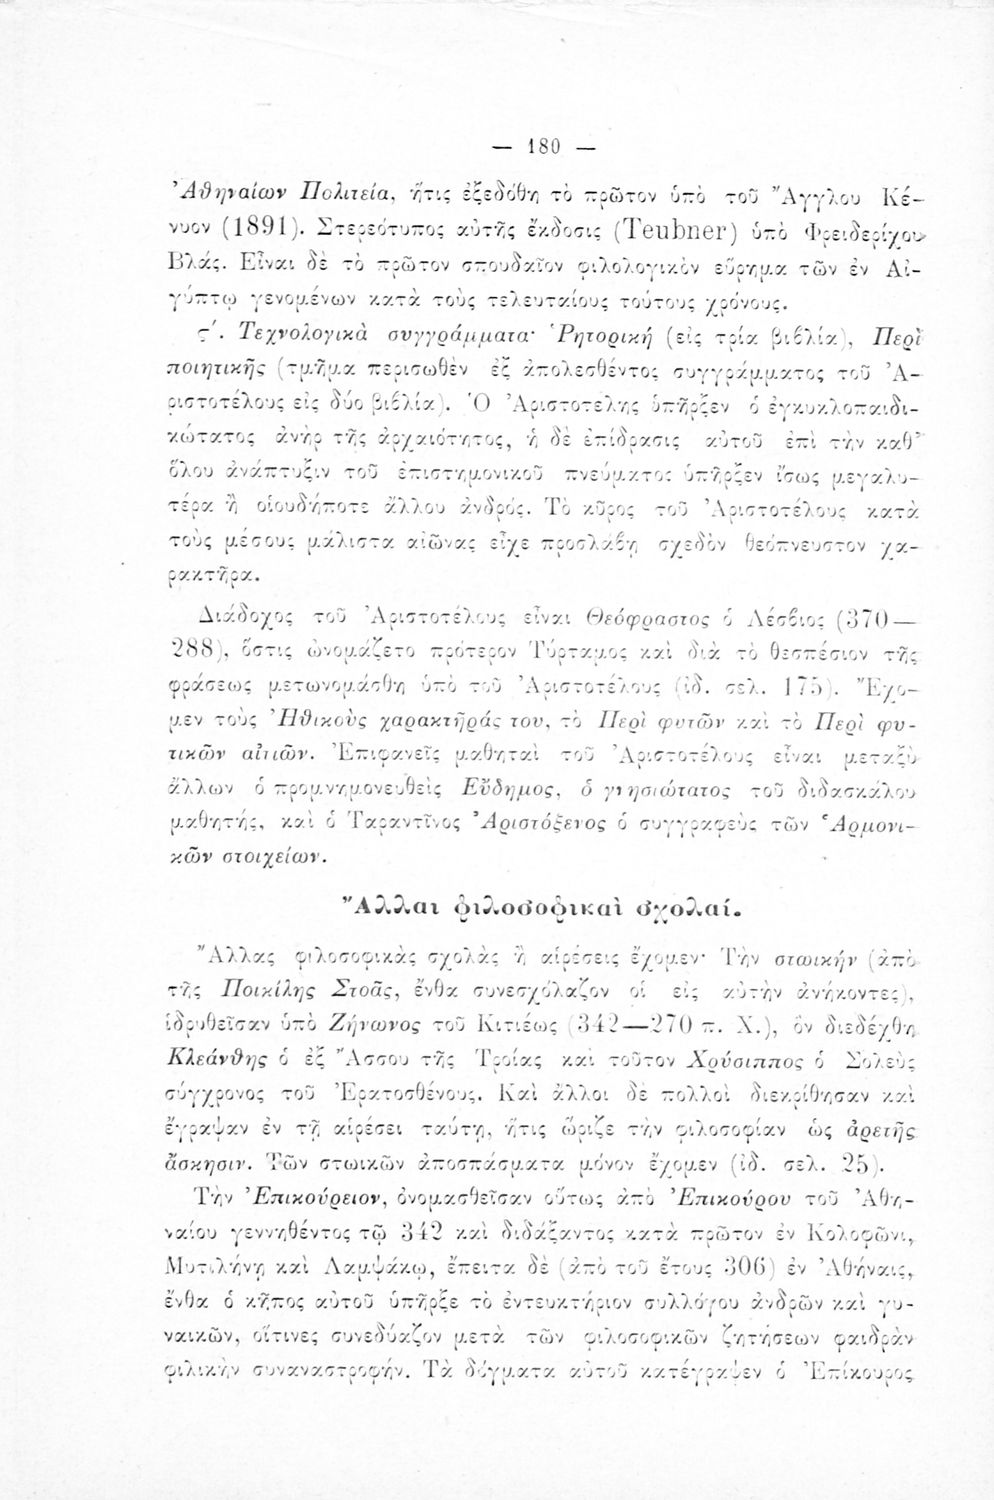 — 180 —
Ἀθηναίων Πολιτεία, ἥτις ἐξεδόθη τὸ πρῶτον ὑπὸ τοῦ Ἄγγλου Κέ-
νυον (1891). Στερεότυπος αὐτῆς ἔκδοσις (Teubner) ὑπὸ Φρειδερίχου
Βλάς. Εἶναι δὲ τὸ πρῶτον σπουδαῖον φιλολογικὸν εὕρημα τῶν ἐν Αἰ-
γύπτῳ γενομένων κατὰ τοὺς τελευταίους τούτους χρόνους.
ϛ΄. Τεχνολογικὰ συγγράμματα· Ῥητορική (εἰς τρία βιβλία), Περὶ
ποιητικῆς (τμῆμα περισωθὲν ἐξ ἀπολεσθέντος συγγράμματος τοῦ Ἀ-
ριστοτέλους εἰς δύο βιβλία). Ὁ Ἀριστοτέλης ὑπῆρξεν ὁ ἐγκυκλοπαιδι-
κώτατος ἀνὴρ τῆς ἀρχαιότητος, ἡ δὲ ἐπίδρασις αὐτοῦ ἐπὶ τὴν καθ’
ὅλου ἀνάπτυξιν τοῦ ἐπιστημονικοῦ πνεύματος ὑπῆρξεν ἴσως μεγαλυ-
τέρα ἢ οἱουδήποτε ἄλλου ἀνδρός. Τὸ κῦρος τοῦ Ἀριστοτέλους κατὰ
τοὺς μέσους μάλιστα αἰῶνας εἶχε προσλάβῃ σχεδὸν θεόπνευστον χα-
ρακτῆρα.
Διάδοχος τοῦ Ἀριστοτέλους εἶναι Θεόφραστος ὁ Λέσβιος (370—
288), ὅστις ὠνομάζετο πρότερον Τύρταμος καὶ διὰ τὸ θεσπέσιον τῆς
φράσεως μετωνομάσθη ὑπὸ τοῦ Ἀριστοτέλους (ἰδ. σελ. 175). Ἔχο-
μεν τοὺς Ἠθικοὺς χαρακτῆράς του, τὸ Περὶ φυτῶν καὶ τὸ Περὶ φυ-
τικῶν αἰτιῶν. Ἐπιφανεῖς μαθηταὶ τοῦ Ἀριστοτέλους εἶναι μεταξὺ
ἄλλων ὁ προμνημονευθεὶς Εὔδημος, ὁ γνησιώτατος τοῦ διδασκάλου
μαθητής, καὶ ὁ Ταραντῖνος Ἀριστόξενος ὁ συγγραφεὺς τῶν Ἁρμονι-
κῶν στοιχείων.
Ἄλλαι φιλοσοφικαὶ σχολαί.
Ἄλλας φιλοσοφικὰς σχολὰς ἢ αἱρέσεις ἔχομεν· Τὴν στωικήν (ἀπὸ
τῆς Ποικίλης Στοᾶς, ἔνθα συνεσχόλαζον οἱ εἰς αὐτὴν ἀνήκοντες),
ἱδρυθεῖσαν ὑπὸ Ζήνωνος τοῦ Κιτιέως (342—270 π. Χ.), ὃν διεδέχθη
Κλεάνθης ὁ ἐξ Ἄσσου τῆς Τροίας καὶ τοῦτον Χρύσιππος ὁ Σολεὺς
σύγχρονος τοῦ Ἐρατοσθένους. Καὶ ἄλλοι δὲ πολλοὶ διεκρίθησαν καὶ
ἔγραψαν ἐν τῇ αἱρέσει ταύτῃ, ἥτις ὥριζε τὴν φιλοσοφίαν ὡς ἀρετῆς
ἄσκησιν. Τῶν στωικῶν ἀποσπάσματα μόνον ἔχομεν (ἰδ. σελ. 25).
Τὴν Ἐπικούρειον, ὀνομασθεῖσαν οὕτως ἀπὸ Ἐπικούρου τοῦ Ἀθη-
ναίου γεννηθέντος τῷ 342 καὶ διδάξαντος κατὰ πρῶτον ἐν Κολοφῶνι,
Μυτιλήνῃ καὶ Λαμψάκῳ, ἔπειτα δὲ (ἀπὸ τοῦ ἔτους 306) ἐν Ἀθήναις,
ἔνθα ὁ κῆπος αὐτοῦ ὑπῆρξε τὸ ἐντευκτήριον συλλόγου ἀνδρῶν καὶ γυ-
ναικῶν, οἵτινες συνεδύαζον μετὰ τῶν φιλοσοφικῶν ζητήσεων φαιδρὰν
φιλικὴν συναναστροφήν. Τὰ δόγματα αὐτοῦ κατέγραψεν ὁ Ἐπίκουρος